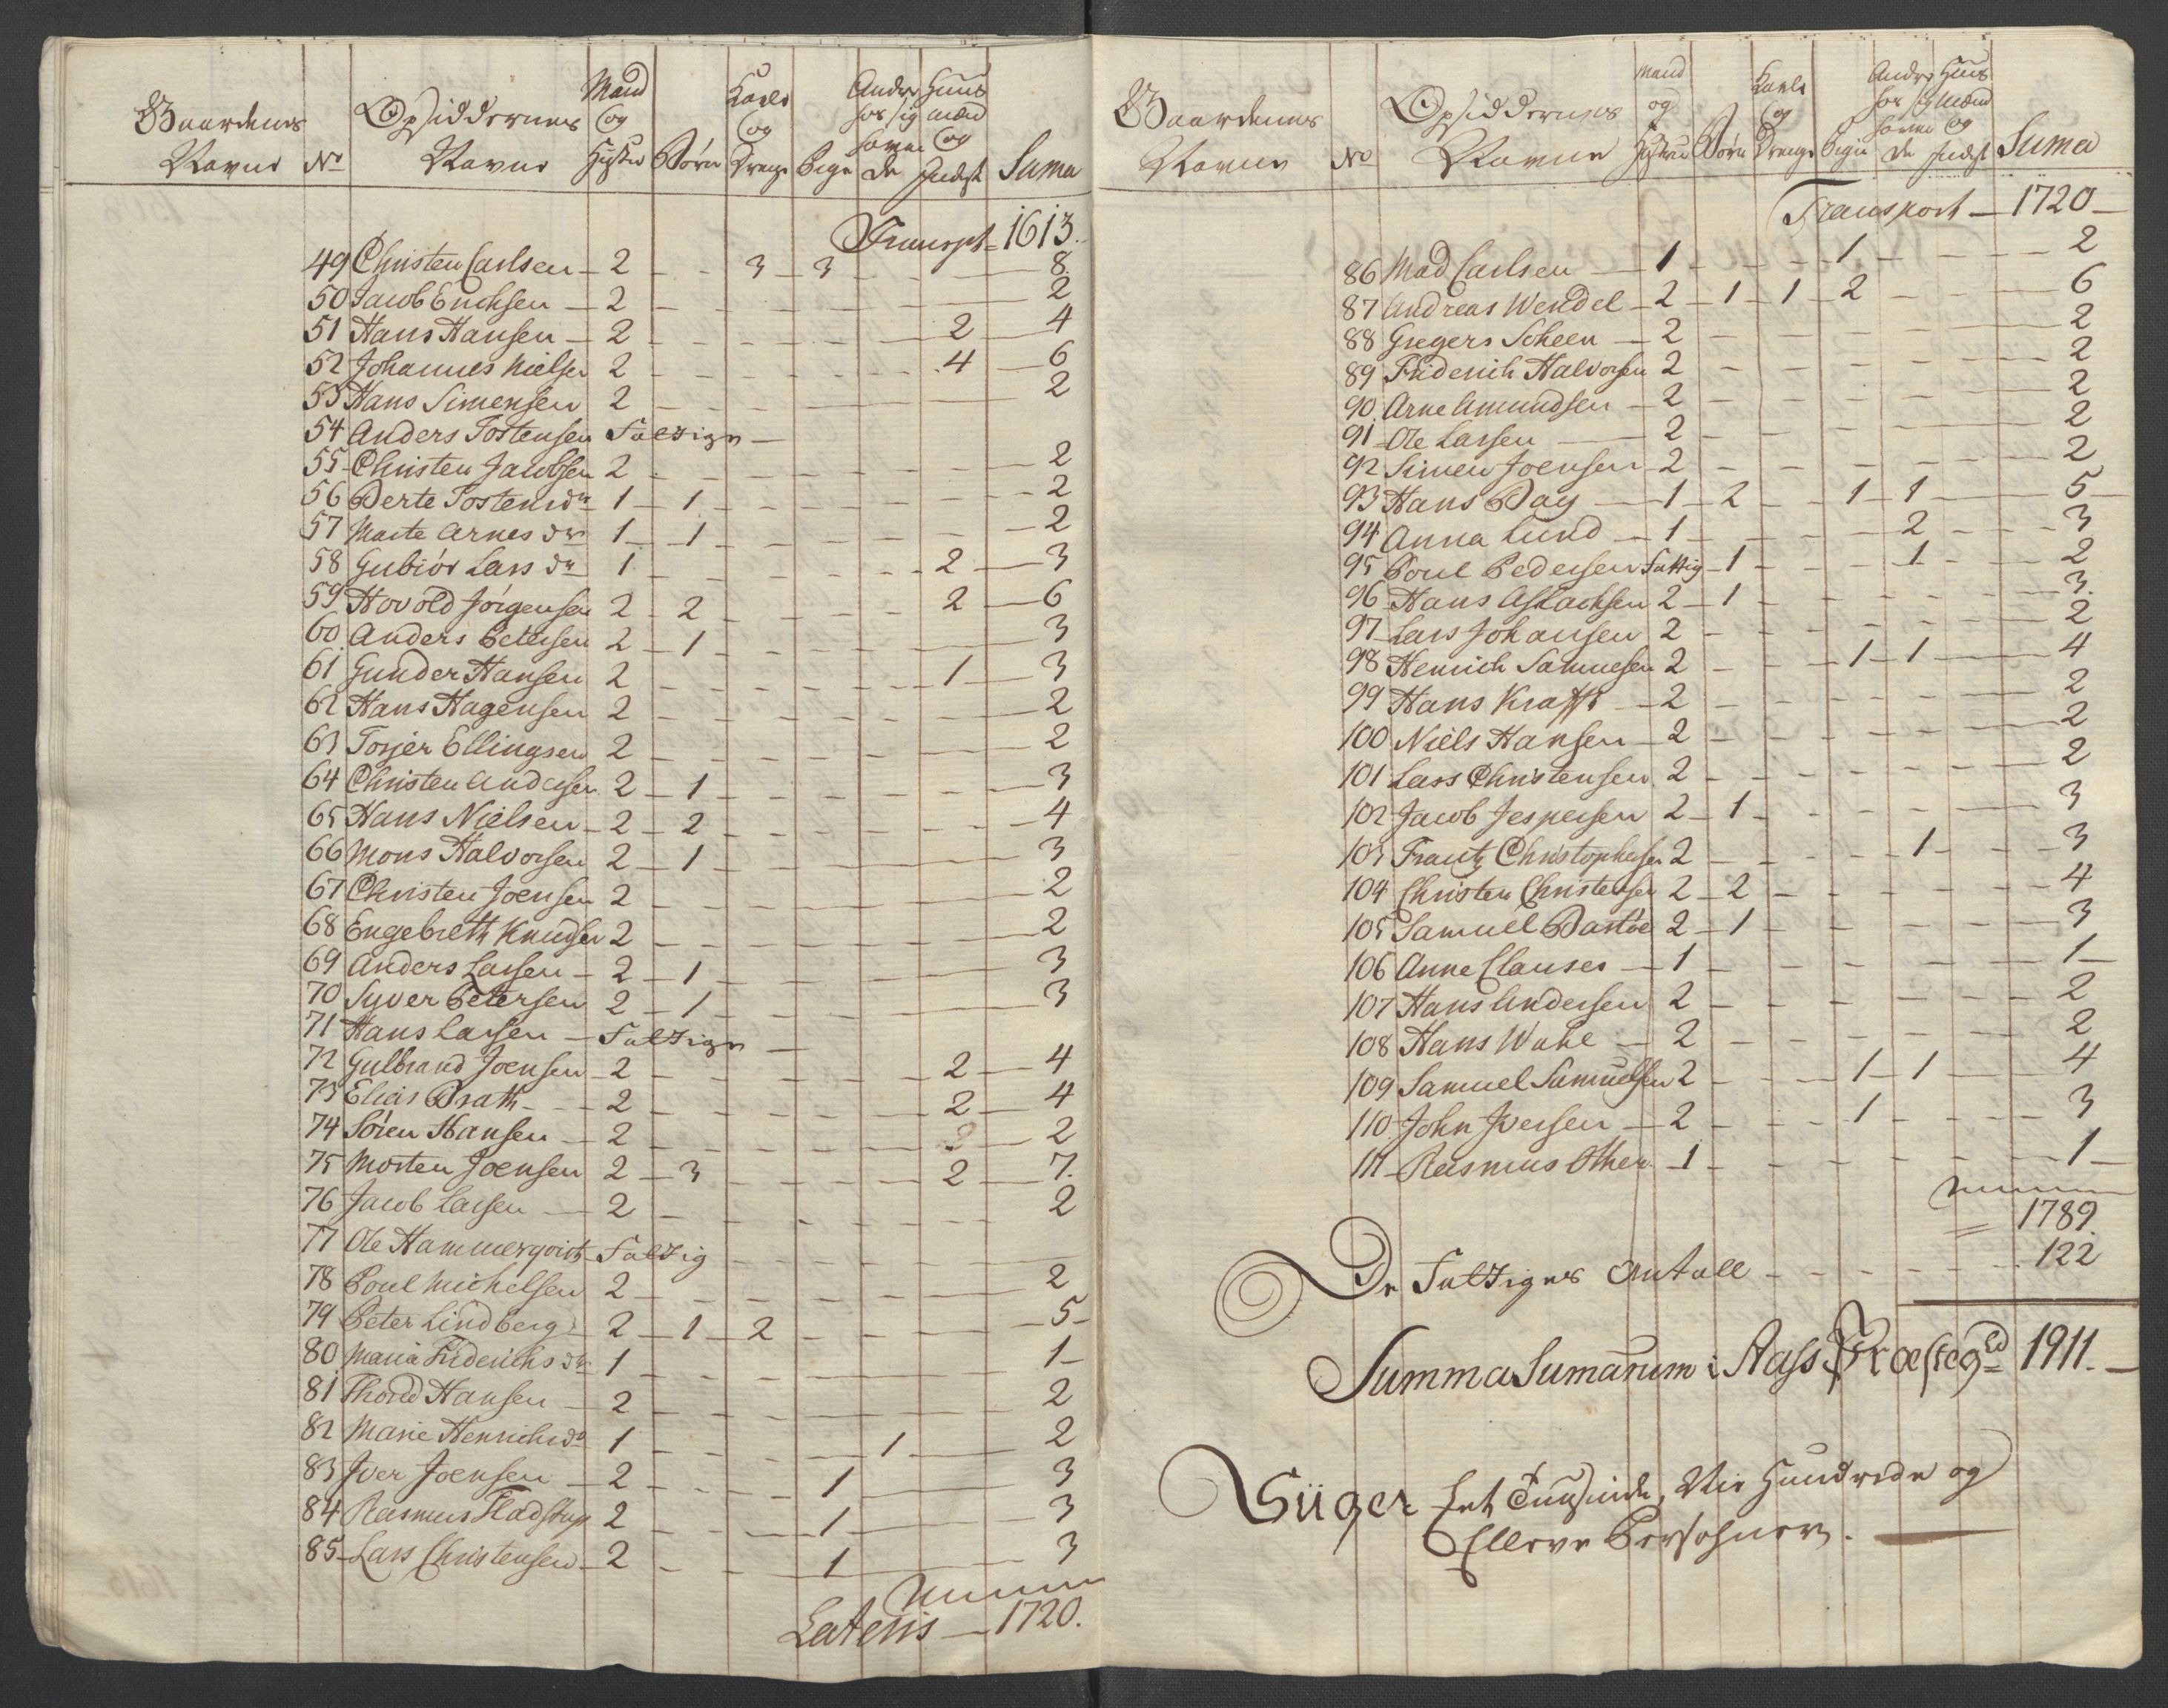 Gaardenes
Navne
No
Opsiddernes
Navne
Mand
og
Hustru
Børn
Karle
og
Drenge
Pige
Andre
hos sig
havende
Huus
mænd
og
Inderst
Suma
Transpt = 1613.
49 Christen Carlsen - 2 - - 3 - 3 - - 8.
50 Jacob Erichsen - 2 - - - 2
51 Hans Hansen - 2 - - - 2 - 4
52 Johannes Nielsen 2 - - - 4 - 6
53 Hans Simensen 2 - - - 2
54 Anders Tostensen Fattige -
55 Christen Jacobsen 2 - - - 2
56 Berte Tostensdr 1 - 1 - - - 2
57 Marte Arnesdr 1 - 1 - - - 2
58 Gubiør Larsdr 1 - - - 2 - 3
59 Hovold Jørgensen 2 - 2 - - - 2 - 6
60 Anders Petersen 2 - 1 - - - 3
61 Gunder Hansen 2 - - - 1 - 3
62 Hans Hagensen 2 - - - 2
63 Torjer Ellingsen 2 - - - 2
64 Christen Andersen 2 - 1 - - - 3
65 Hans Nielsen - 2 - 2 - - - 4
66 Mons Halvorsen 2 - 1 - - - 3
67 Christen Joensen 2 - - - 2
68 Engebreth Knudsen 2 - - - 2
69 Anders Larsen - 2 - 1 - - - 3
70 Syver Petersen 2 - 1 - - - 3
71 Hans Larsen - Fattige -
72 Gulbrand Joensen - 2 - - - 2 - 4
73 Elias Brath - - 2 - - - 2 - 4
74 Søren Hansen - 2 - - - 2
75 Morten Joensen 2 - 3 - - - 2 - 7.
76 Jacob Larsen - 2 - - - 2
77 Ole Hammerqvist Fattig - - -
78 Poul Michelsen 2 - - - 2
79 Peter Lindberg - 2 - 1 - 2 - - - 5 -
80 Maria Friderichsdr 1 - - - 1 -
81 Thord Hansen - 2 - - - 2
82 Marie Henrichsdr 1 - - - 1 - 2
83 Iver Joensen - 2 - - - 1 - 3
84 Rasmus Fladstrup 2 - - - 1 - 3
85 - Lars Christensen - 2 - - 1 - 3
Lateris - 1720.
Gaardenes
Navne
No
Opsiddernes
Navne
Mand
og
Hustru
Børn
Karle
og
Drenge
Pige
Andre
hos sig
havende
Huus
Mænd
og
Inderst
Suma
Transport - 1720 -
86 Mad Carlsen - 1 - - - 1 - - 2
87 Andreas Wendel - 2 - 1 - 1 - 2 - - 6
88 Gregers Scheen - 2 - - - 2
89 Friderich Halvorsen 2 - - - 2
90 Arne Amundsen - 2 - - - 2
91 - Ole Larsen - 2 - - - 2
92 Simen Joensen - 2 - - - 2
93 Hans Bay - 1 - 2 - - 1 - 1 - 5
94 Anna Lund - 1 - - - 2 - - 3
95 Poul Pedersen Fattig - 1 - - - 1 - - 2
96 Hans Aslachsen 2 - 1 - - - 3.
97 - Lars Johansen 2 - - - 2
98 Henrich Samuelsen 2 - - - 1 - 1 - 4
99 Hans Krafft - 2 - - - 2
100 Niels Hansen - 2 - - - 2
101 Lars Christensen 2 - - - 2
102 Jacob Jespersen 2 - 1 - - - 3
103 Frantz Christophersen 2 - - - 1 - - 3
104 Christen Christensen 2 - 2 - - - 4
105 Samuel Bastøe 2 - 1 - - - 3
106 Anne Clauses - 1 - - - 1 -
107 Hans Andersen 2 - - - 2
108 Hans Wahl - 2 - - - 2
109 Samuel Samuelsen 2 - - - 1 - 1 - 4
110 John Iversen - 2 - - - 1 - - 3
111 - Rasmus Other - 1 - - - 1 -
= 1789.
De Fattiges Antall - - - 122
Summa Sumarum i Aass Præstegd 1911. -
Siiger Eet Tuusinde, Nie Hundrede og
Elleve Personer. -